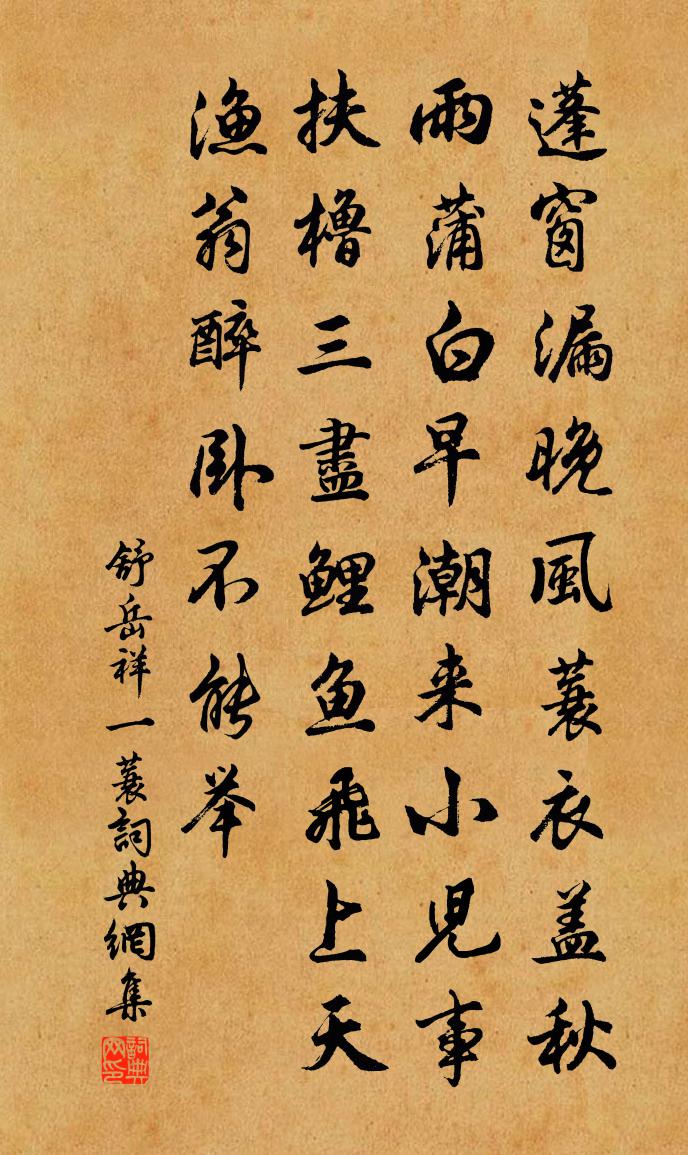 蓬窗漏晚風蓑衣盖秋
雨蒲白早潮来小児事
扶櫓三盡鲤鱼飛上天
漁翁醉卧不能举
舒岳祥一蓑詞典網集
詞典网印